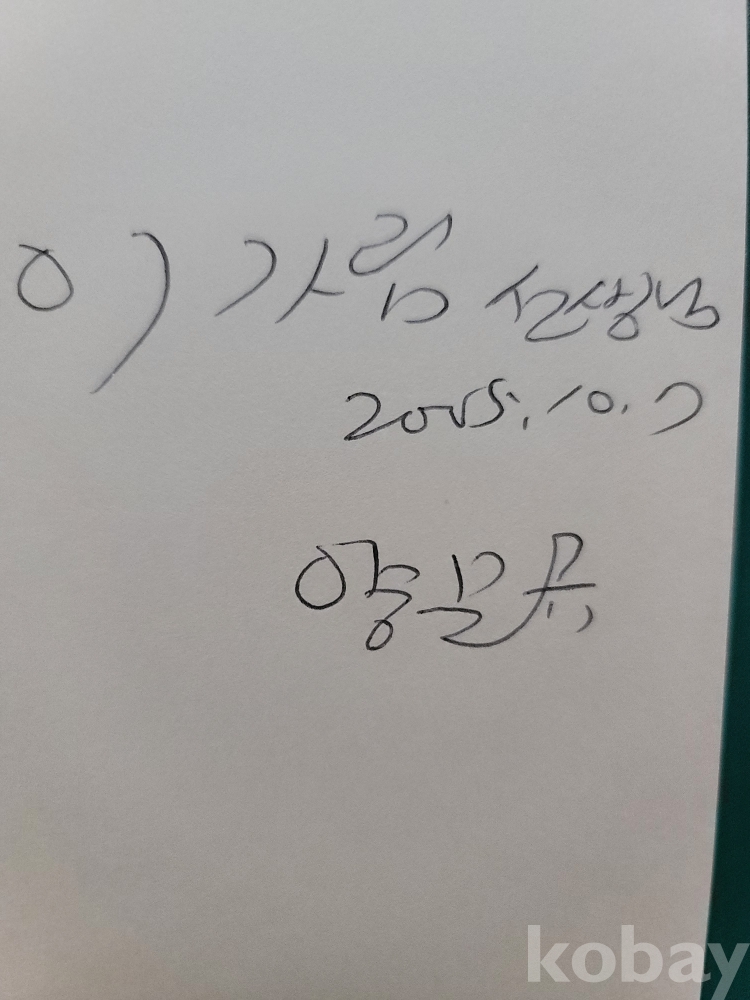 이가림 선생님
2005. 10. 7
양문규
kobay